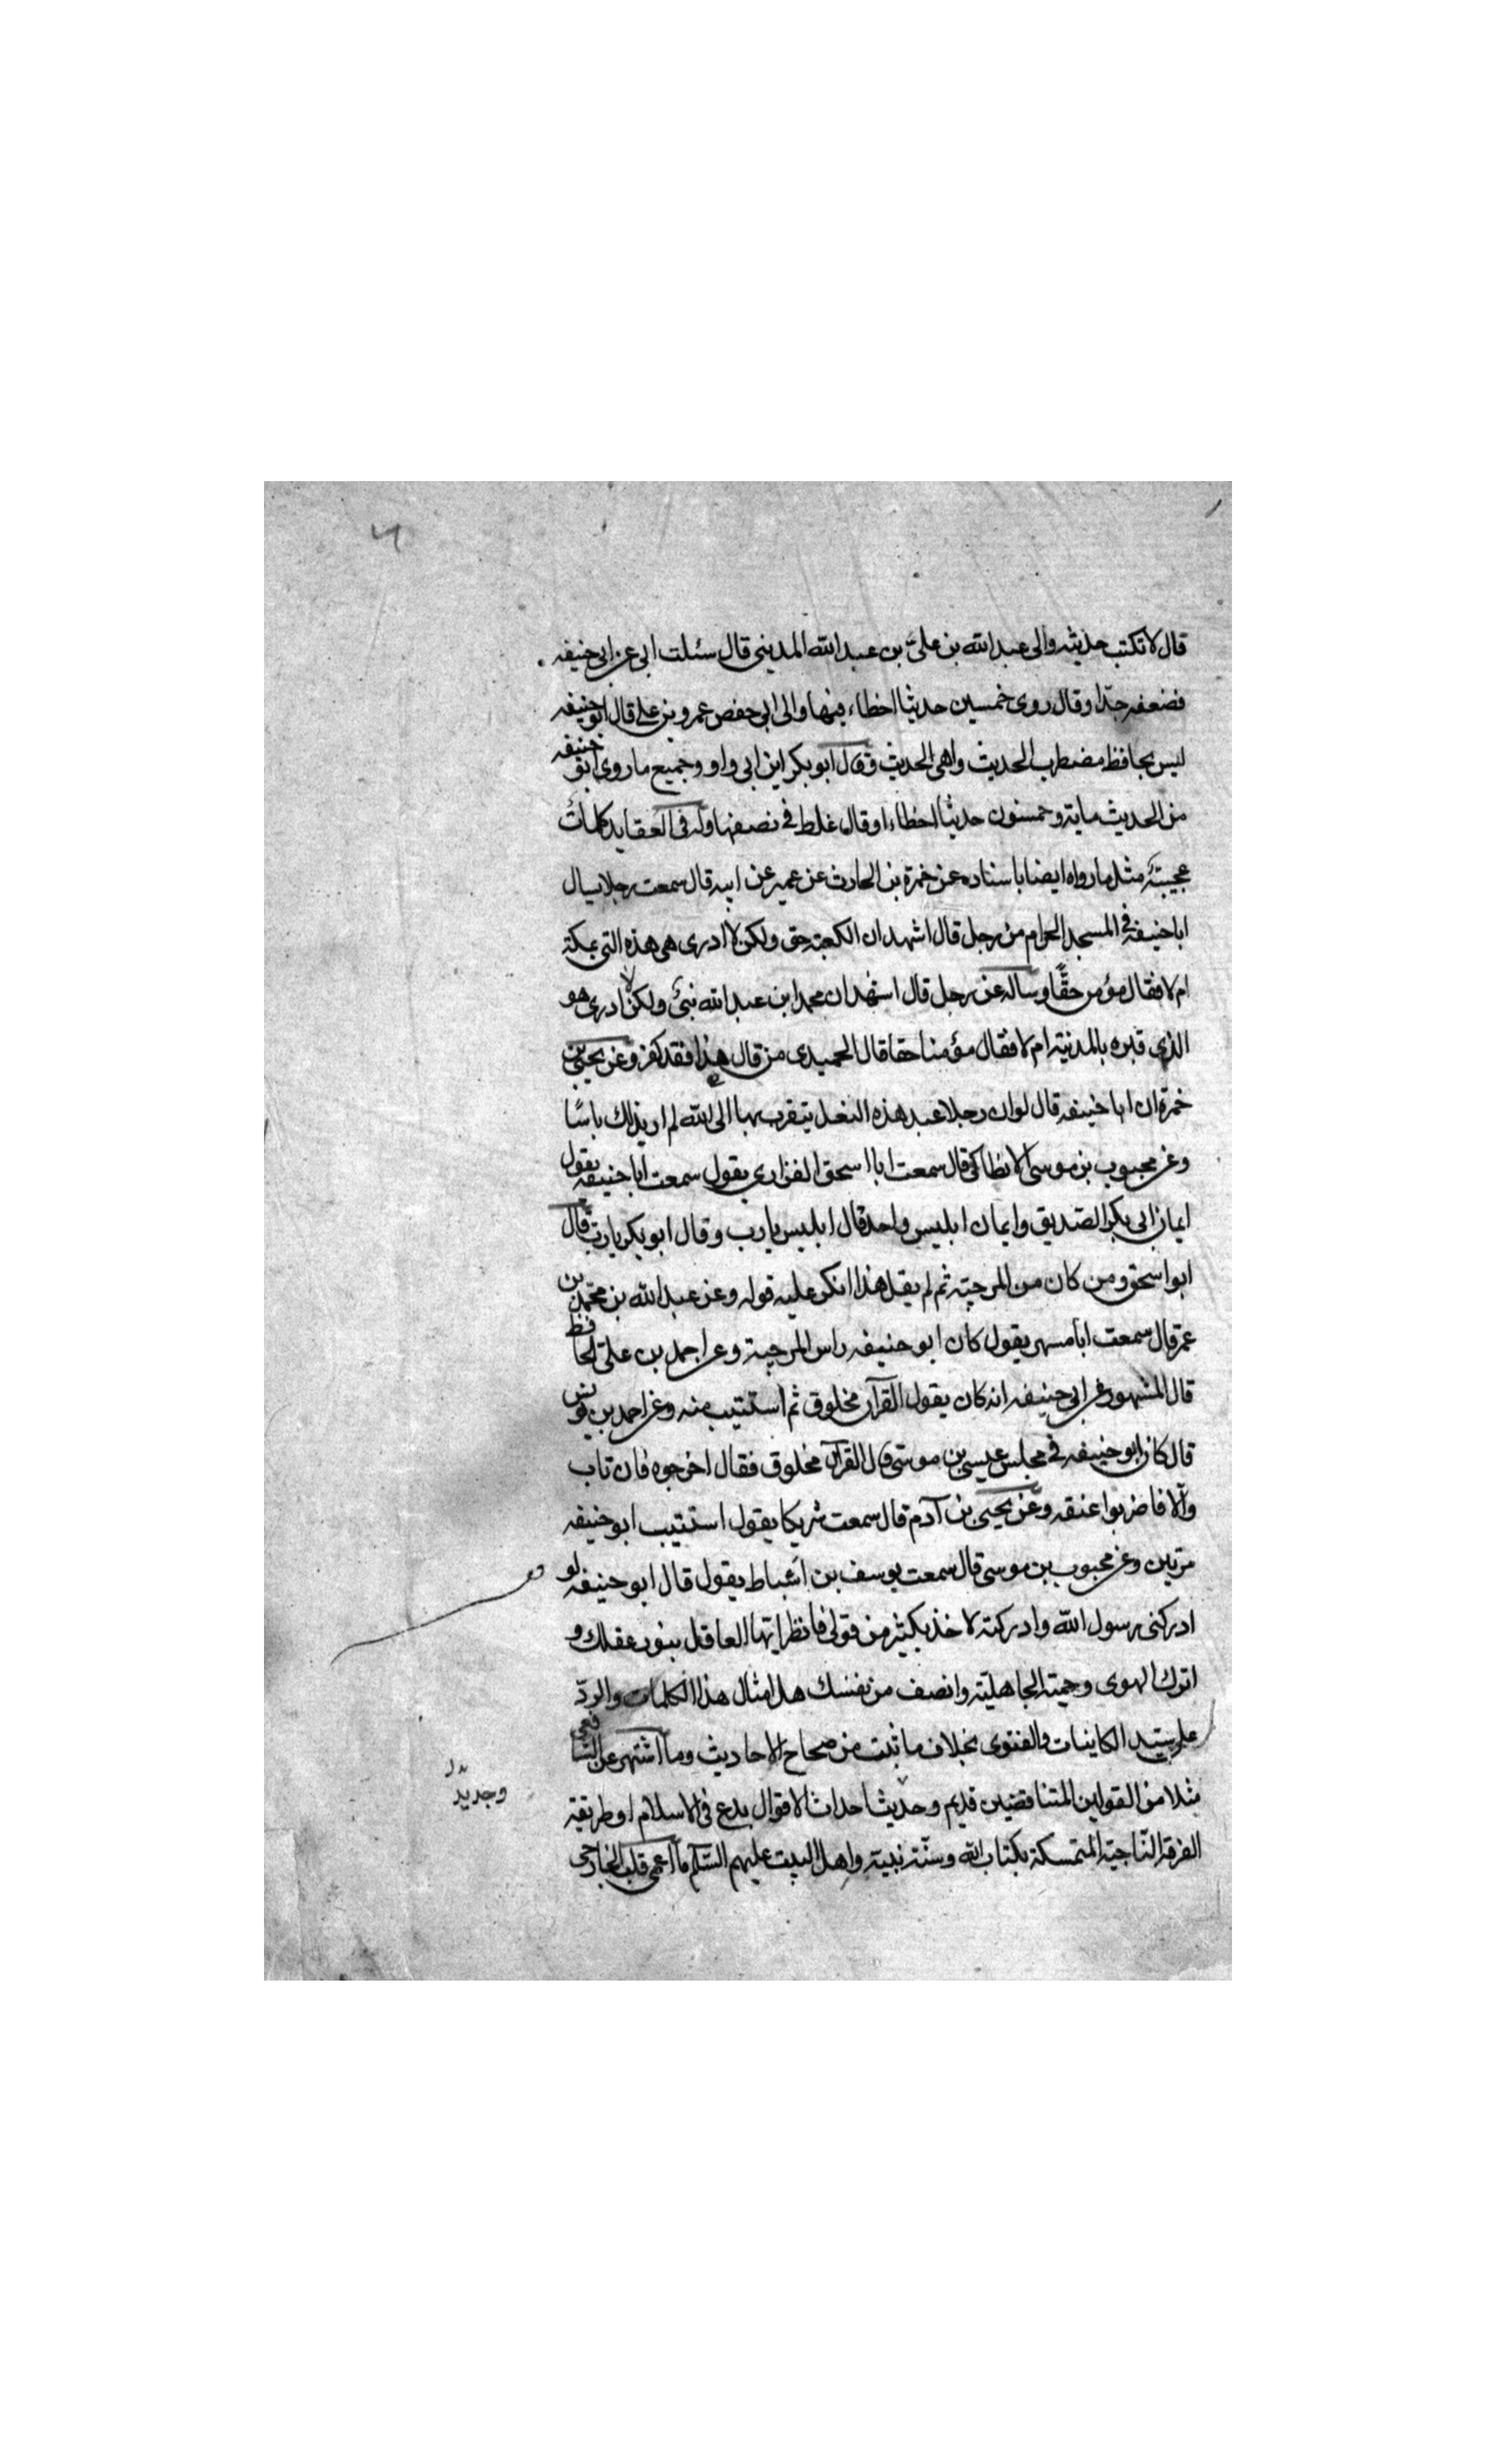 قال لا تكتب حديثه والى عبد الله بن علىّ بن عبد الله المدينى قال سئلت ابى عن ابى حنيفه
فضعفه جدّا وقال روى خمسين حديثا اخطاء فيها والى ابى حفص عمرو بن على قال ابو حنيفه
ليس بحافظ مضطرب الحديث واهى الحديث وقال ابو بكر ابن ابى داود وجميع ما روى ابو حنيفه
من الحديث ماية وخمسون حديثا اخطاء او قال غلط فى نصفها وله فى العقايد كلمات
عجيبة مثل ما رواه ايضا باسناده عن حمزة بن الحارث عن عمير عن ابيه قال سمعت رجلا يسال
ابا حنيفه فى المسجد الحرام من رجل قال اشهد ان الكعبة حق ولكن لا ادرى هى هذه التى بمكة
ام لا فقال مؤمن حقًّا وساله عن رجل قال اشهد ان محمد ابن عبد الله نبىّ ولكن لا ادرى هو
الذى قبره بالمدنية ام لا فقال مؤمنا حقا قال الحميدى من قال هذا فقد كفر وعن يحيى بن
حمزة ان ابا حنيفه قال لو ان رجلا عبد هذه النعل يتقرب بها الى الله لم ار بذلك باسًا
وعن محبوب بن موسى الانطاكى قال سمعت ابا اسحق الفزارى يقول سمعت ابا حنيفه يقول
ايمان ابى بكر الصّديق وايمان ابليس واحد قال ابليس يا رب وقال ابو بكر يا ربّ قال
ابو اسحق ومن كان من المرجية ثم لم يقل هذا انكر عليه قوله وعن عبد الله بن محمّد بن
عمر قال سمعت ابا مسهر يقول كان ابو حنيفه راس المرجية وعن احمد بن علىّ الحافظ
قال المشهور عن ابى حنيفه انه كان يقول القرآن مخلوق ثم استتيب منه وعن احمد بن يونس
قال كان ابو حنيفه فى مجلس عيسى بن موسى قال القرآن مخلوق فقال اخرجوه فان تاب
والّا فاضربوا عنقه وعن يحيى بن آدم قال سمعت شريكا يقول استتيب ابو حنيفه
مرّتين وعن محبوب بن موسى قال سمعت يوسف بن اسباط يقول قال ابو حنيفه لو
ادركنى رسول الله وادركته لاخذ بكثير من قولى فانظر ايّها العاقل بنور عقلك و
اترك الهوى وحمية الجاهليّة وانصف من نفسك هل امثال هذا الكلمات والردّ
على سيّد الكاينات والفتوى بخلاف ما ثبت من صحاح الاحاديث وما اشتهر عن الشافعى
مثلا من القولين المتناقضين قديم وحديث احداث الاقوال بدع فى الاسلام او طريقة
الفرقة النّاجية المتمسكة بكتاب الله وسنّة نبيّه واهل البيت عليهم السّلام ما اعمى قلب الخارجى
وجديد
بدل